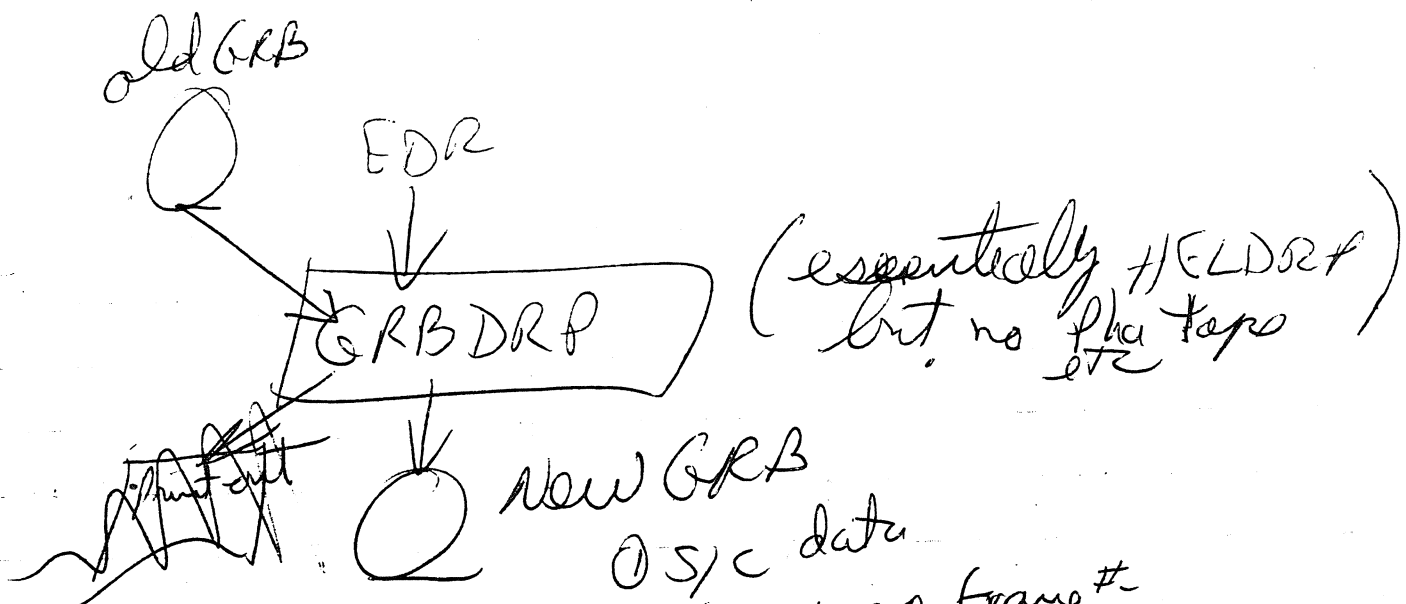 old GRB
EDR
(essentially HELDRP)
but no Pha tape
etc
GRBDRP
Printout
New GRB
① S/C data
frame #